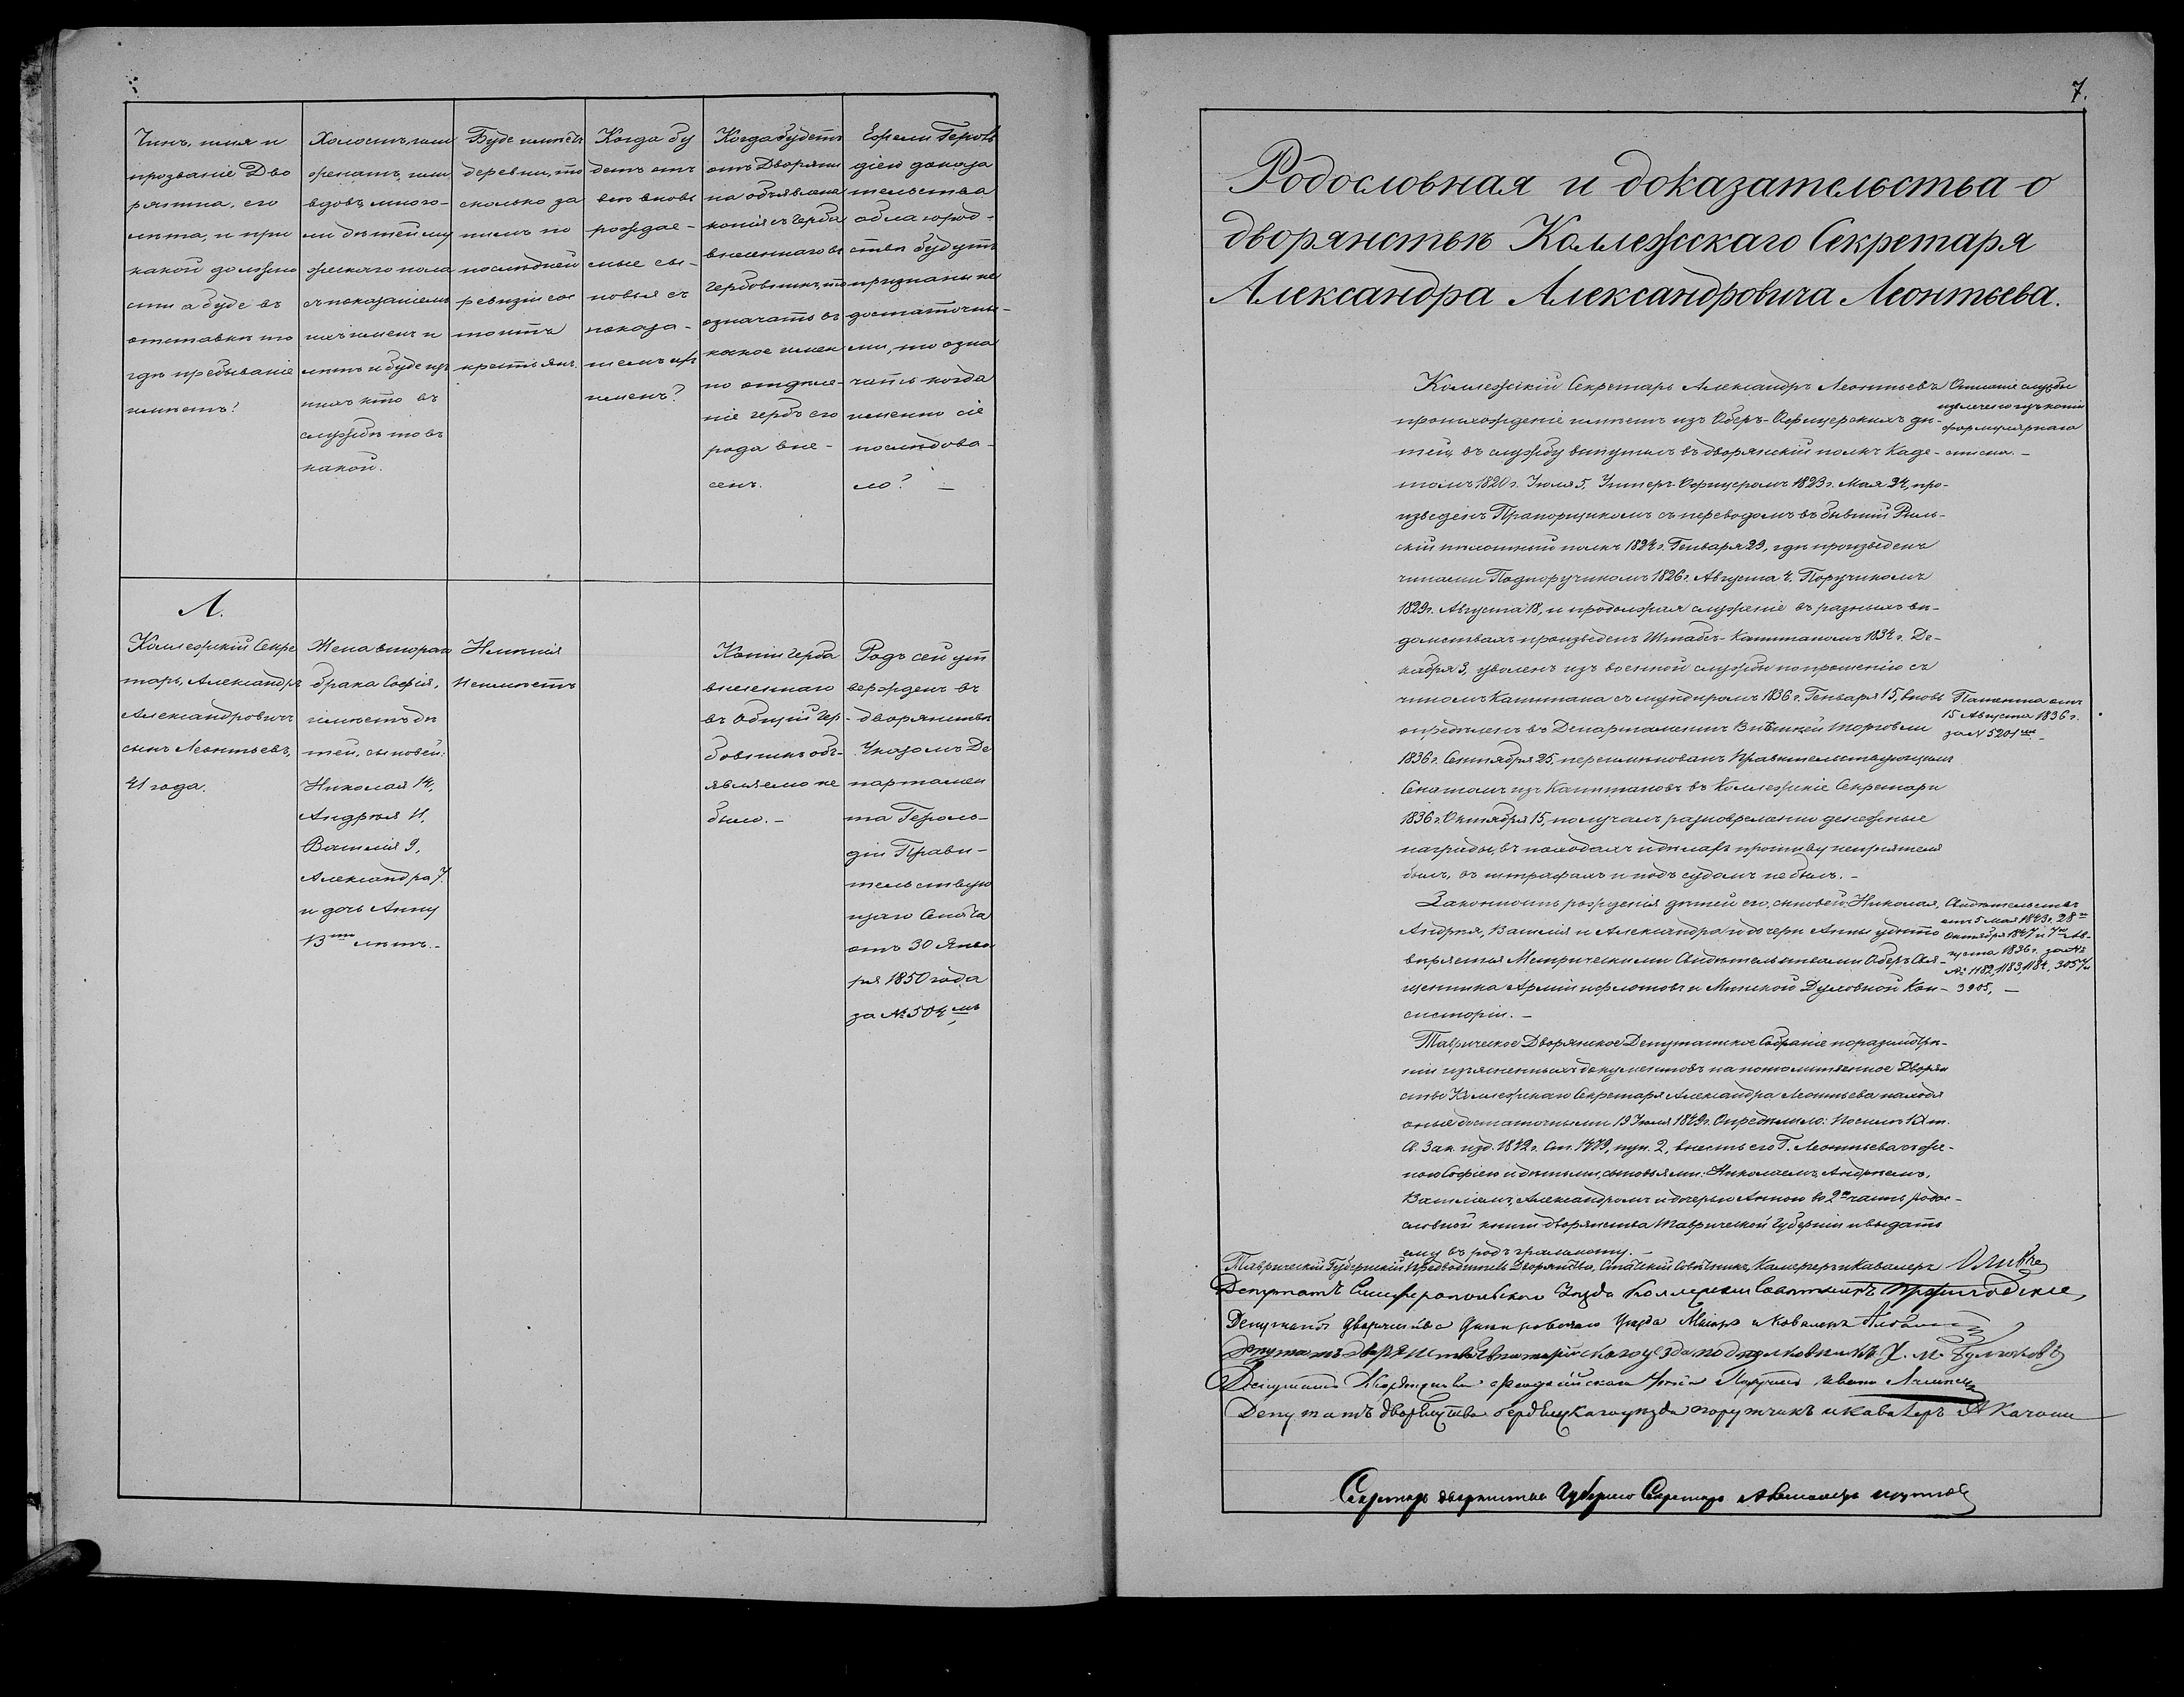 Чинъ, имя и
прозваніе Дво
рянина, его
лѣта, и при
какой должно
сти а буде въ
отставкѣ то
гдѣ пребываніе
имѣетъ?
Холостъ, или
женатъ, или
вдовъ, много-
ли дѣтей му
жескаго пола
съ показаніемъ
ихъ именъ и
лѣтъ и буде изъ
нихъ кто въ
службѣ то въ
какой.
Буде имѣетъ
деревни, то
сколько за
нимъ по
послѣдней
ревизіи сос
тоитъ
крестьянъ.
Когда бу
детъ отъ
него вновь
рождае-
мые сы-
новья съ
показа-
ніемъ ихъ
именъ?
Когда будетъ
отъ Дворяни
на объявлена
копія съ герба
внесеннаго въ
Гербовникъ, то
означать въ
какое имен
но отдѣле-
ніе гербъ его
рода вне-
сенъ.
Ежели Героль
діею доказа
тельства
о благород-
ствѣ будутъ
признаны не
достаточны-
ми, то озна
чать когда
именно сіе
послѣдова-
ло? —
Л.
Коллежскій Секре
тарь, Александръ
Александровичъ
сынъ Леонтьевъ,
41 года.
Жена втораго
брака Софія,
имѣетъ дѣ
тей, сыновей:
Николая 14,
Андрея 11,
Василія 9,
Александра 7.
и дочь Анну
13ти лѣтъ.-
Имѣнія
неимѣетъ
Копіи герба
внесеннаго
въ Общій Гер-
бовникъ объ-
являемо не
было.-
Родъ сей ут
вержденъ въ
дворянствѣ
Указомъ Де
партамен
та Героль-
діи Прави-
тельствую
щаго Сената
отъ 30 Янва
ря 1850 года
за № 504мъ
7.
Родословная и доказательства о
дворянствѣ Коллежскаго Секретаря
Александра Александровича Леонтьева.
Коллежскій Секретарь Александръ Леонтьевъ
происхожденіе имѣетъ изъ Оберъ-Офицерскихъ дѣ-
тей, въ службу вступилъ въ дворянскій полкъ Каде-
томъ 1820 г. Іюля 5, Унтеръ-Офицеромъ 1823 г. Мая 24, про-
изведенъ Прапорщикомъ съ переводомъ въ бывшій Рыль-
скій пѣхотный полкъ 1824 г. Генваря 29, гдѣ произведенъ
чинами Подпоручикомъ 1826 г. Августа 4. Поручикомъ
1829 г. Августа 18, и продолжая служеніе въ разныхъ вѣ-
домствахъ произведенъ Штабсъ-Капитаномъ 1834 г. Де-
кабря 3, уволенъ изъ военной службы по прошенію съ
чиномъ Капитана съ мундиромъ 1836 г. Генваря 15, вновь
опредѣленъ въ Департаментъ Внѣшней торговли
1836 г. Сентября 25, переименованъ Правительствующимъ
Сенатомъ изъ Капитановъ въ Коллежскіе Секретари
1836 г. Октября 15, получалъ разновременно денежныя
награды, въ походахъ и дѣлахъ противу непріятеля
былъ, въ штрафахъ и подъ судомъ не былъ.-
Описаніе службы
извлечено изъ копіи
формулярнаго
списка.-
Патента отъ
15 Августа 1836 г.
за № 5201мъ
Законность рожденія дѣтей его, сыновей: Николая,
Андрея, Василія и Александра и дочери Анны удосто
вѣряется Метрическими Свидѣтельствами Оберъ Свя-
щенника Арміи и флотовъ и Минской Духовной Кон-
систоріи.-
Свидѣтельства
отъ 5 Мая 1843 г. 28го
Октября 1847 и 7го Ав-
густа 1836 г. за №
№ 1182, 1183, 1184, 3057 и
3905, —
Таврическое Дворянское Депутатское Собраніе по разсмотрѣ-
ніи изъясненныхъ документовъ на потомственное Дворян
ство Коллежскаго Секретаря Александра Леонтьева находя
оныя достаточными 19 Іюля 1849 г. Опредѣлило: По силѣ IX т.
Св. Зак. изд. 1842 г. Ст. 1479, пун. 2, внесть его Г. Леонтьева съ же-
ною Софіею и дѣтьми, сыновьями: Николаемъ, Андреемъ,
Василіемъ, Александромъ и дочерью Анною во 2ю часть родос-
ловной книги дворянства Таврической Губерніи и выдать
ему въ родъ грамоту.-
Таврическій Губернскій Предводитель Дворянства, Статскій Совѣтникъ, Камергеръ и Кавалеръ
Депутатъ Симферопольскаго Уѣзда Коллежскій Совѣтникъ
Депутатъ дворянства Днѣпровскаго Уѣзда Маіоръ и Кавалеръ
Депутатъ дворянства Евпаторійскаго уѣзда подполковникъ
Депутатъ Дворянства Феодосійскаго Уѣзда Поручикъ Иванъ
Депутатъ дворянства бердянскаго уѣзда поручикъ и кавалеръ
Секретарь дворянства Губернскій Секретарь